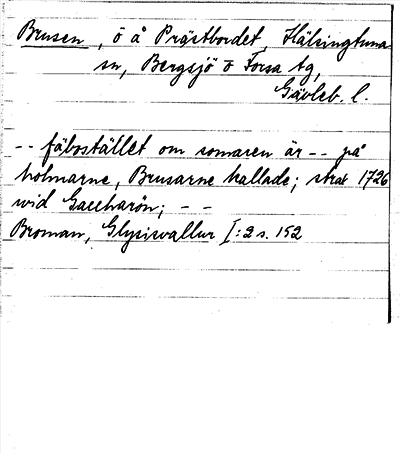 Brusen, ö å Prästbordet, Hälsingtuna
sn, Bergsjö o Forsa tg,
Gävleb. l.
-- fäbostället om somaren är -- på
holmarne, Brusarne kallade; strax 1726
wid Gaccharön; - -
Broman, Glysisvallur I:2 s. 152